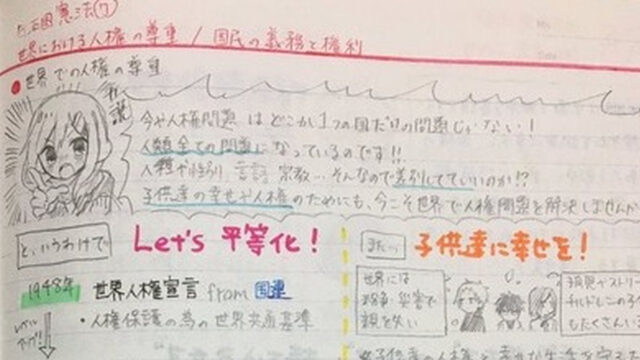 日本国憲法⑦
世界における人権の尊重 / 国民の義務と権利
● 世界での人権の尊重
今や人権問題はどこか1つの国だけの問題じゃない!
人類全ての問題になっているのです!!
人種や 言語 宗教... そんなので差別してていいのか!?
子供達の幸せや人権のためにも、今こそ世界で人権問題を解決しませんか
と、いうわけで Let's 平等化!
1948年 世界人権宣言 from 国連
・人権保護の為の世界共通基準
また... 子供達に幸せを!
世界には
紛争、災害で
親を失い
孤児やストリート
チルドレンの子
もたくさんいる